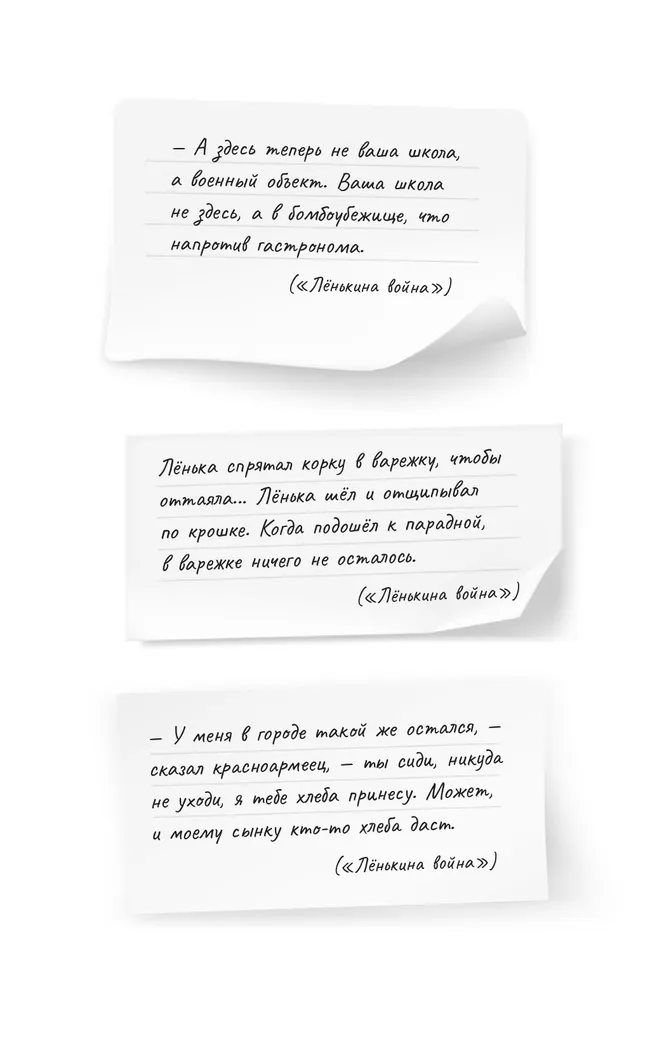 — А здесь теперь не ваша школа,
а военный объект. Ваша школа
не здесь, а в бомбоубежище, что
напротив гастронома.
(«Лёнькина война»)
Лёнька спрятал корку в варежку, чтобы
оттаяла... Лёнька шёл и отщипывал
по крошке. Когда подошёл к парадной,
в варежке ничего не осталось.
(«Лёнькина война»)
— У меня в городе такой же остался, —
сказал красноармеец, — ты сиди, никуда
не уходи, я тебе хлеба принесу. Может,
и моему сынку кто-то хлеба даст.
(«Лёнькина война»)